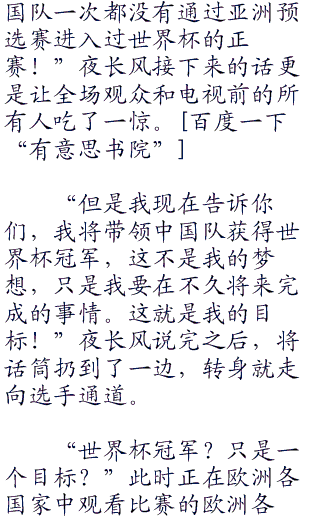 国队一次都没有通过亚洲预
选赛进入过世界杯的正
赛！”夜长风接下来的话更
是让全场观众和电视前的所
有人吃了一惊。[百度一下
“有意思书院”]
“但是我现在告诉你
们，我将带领中国队获得世
界杯冠军，这不是我的梦
想，只是我要在不久将来完
成的事情。这就是我的目
标！”夜长风说完之后，将
话筒扔到了一边，转身就走
向选手通道。
“世界杯冠军？只是一
个目标？”此时正在欧洲各
国家中观看比赛的欧洲各